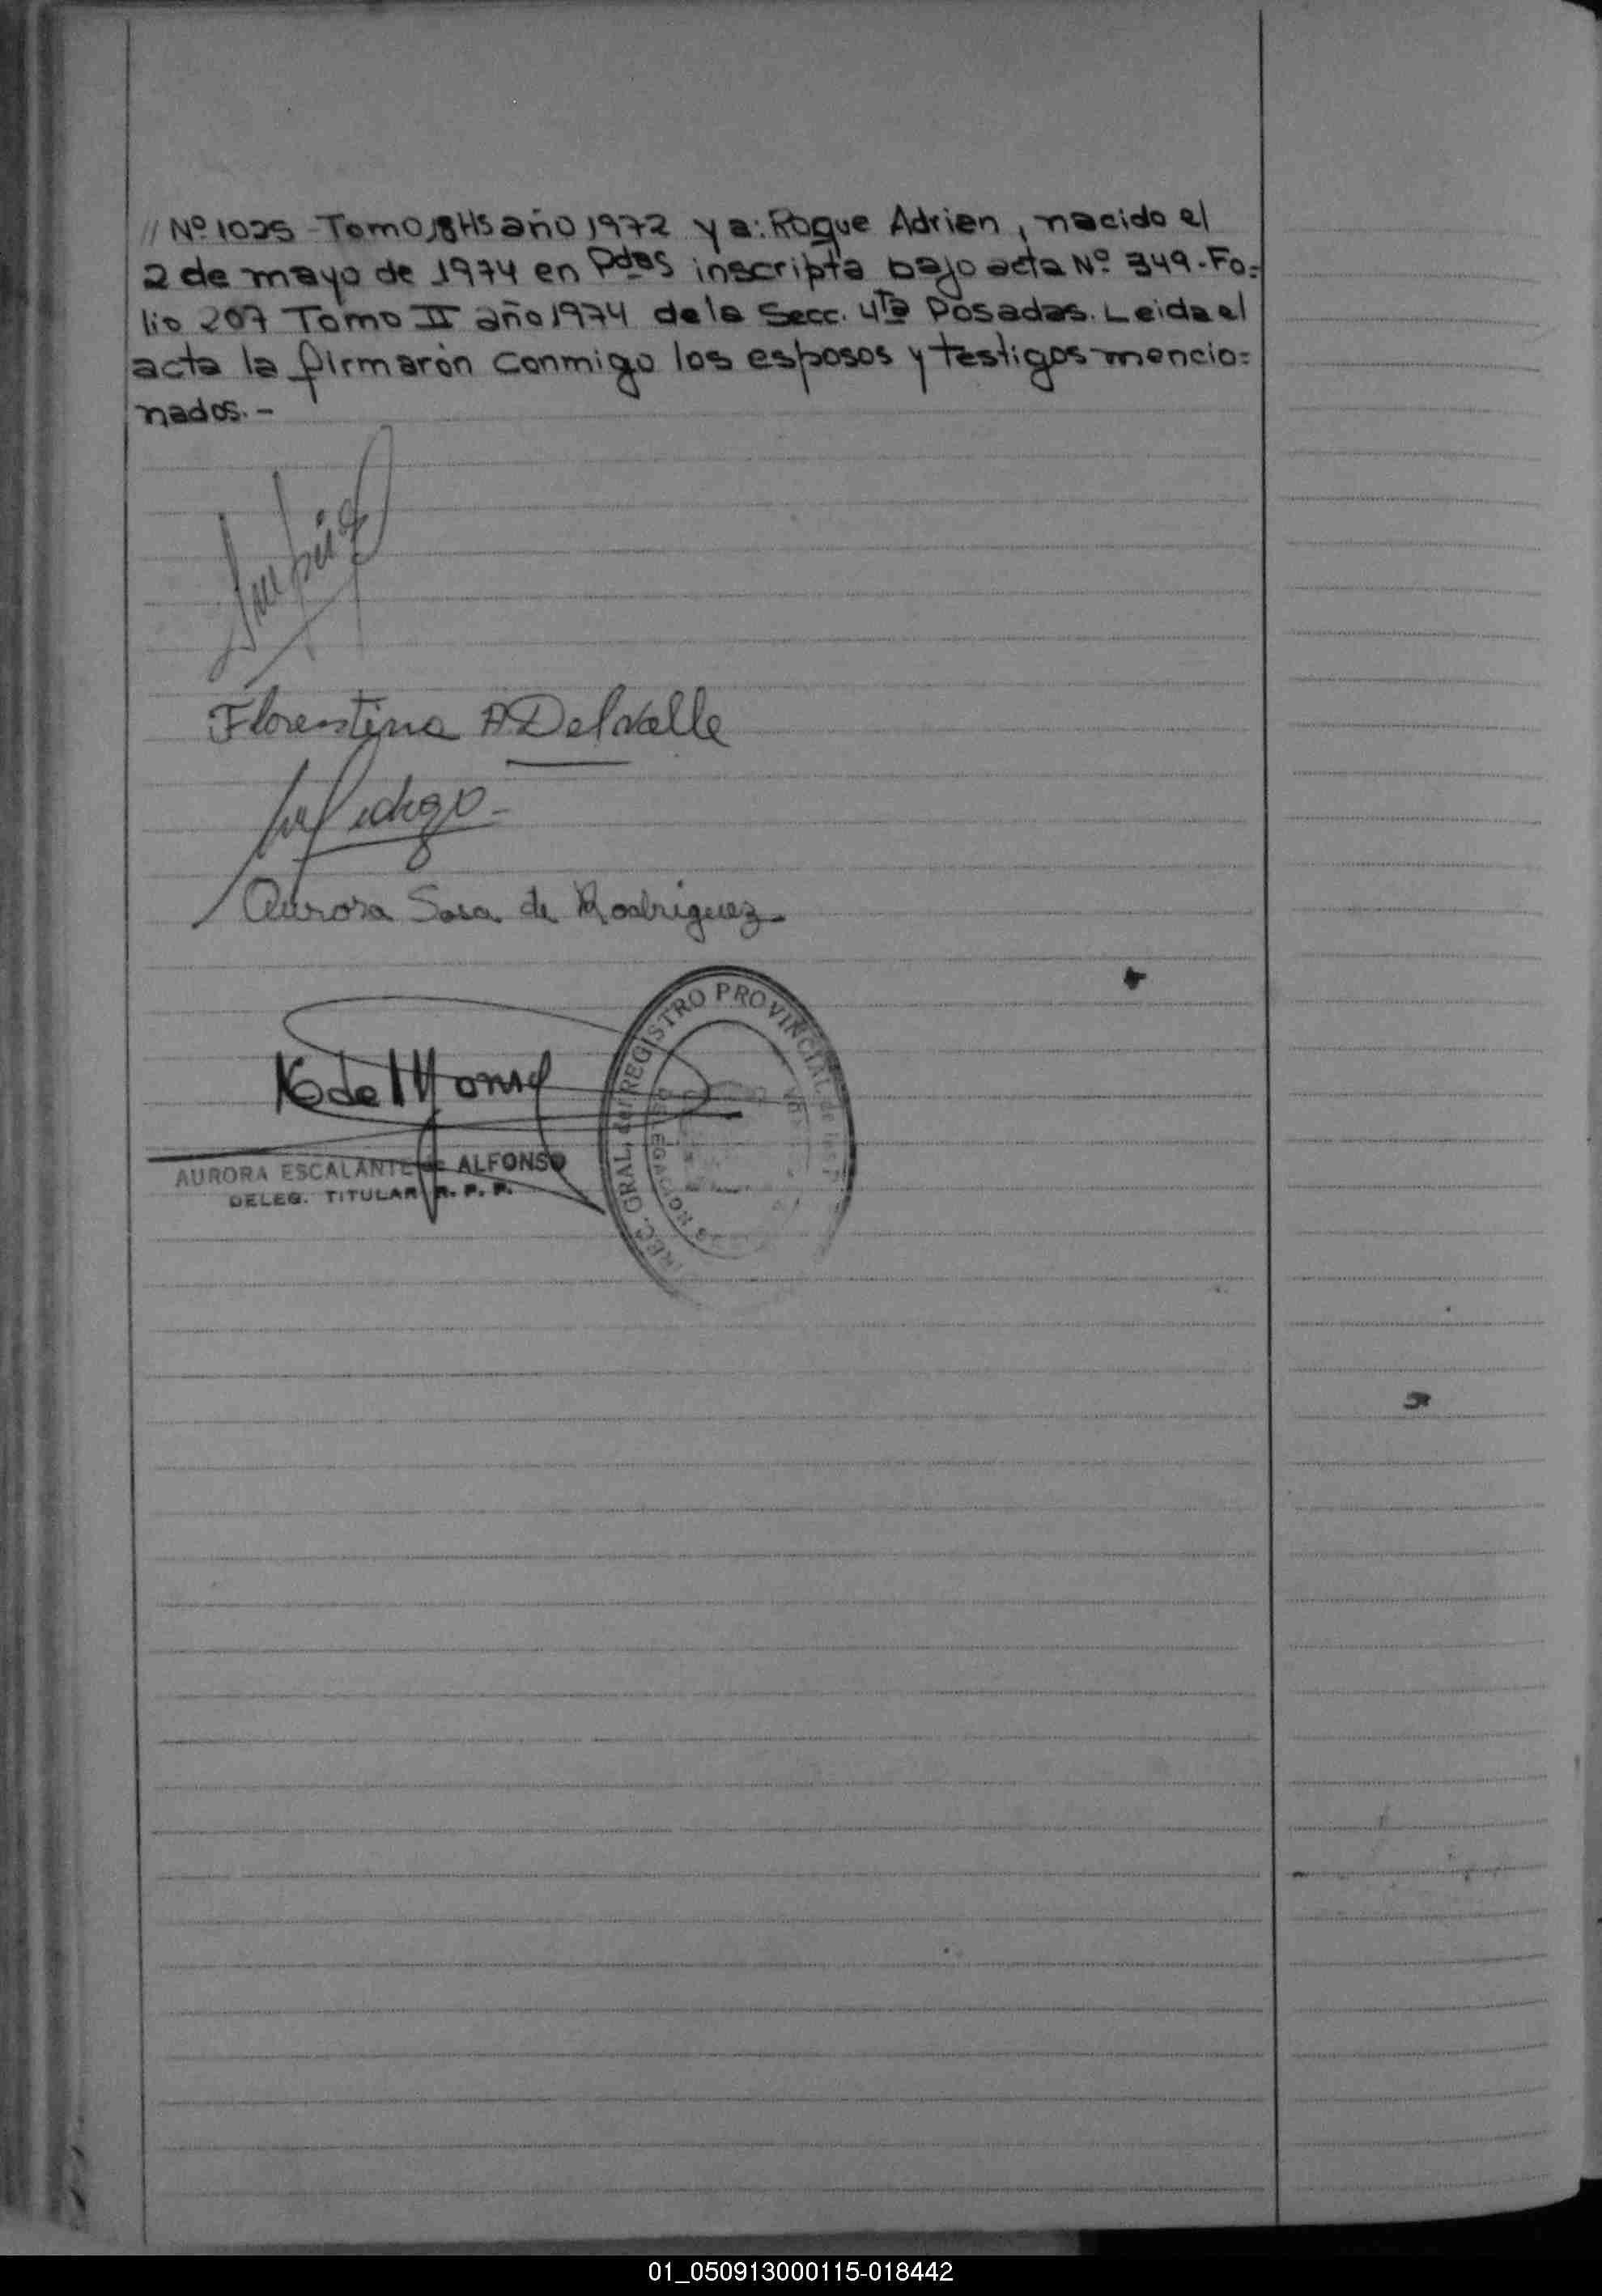 // Nº 1025 - Tomo 18Hs año 1972 y a: Roque Adrian, nacido el
2 de mayo de 1974 en Pdas inscripta bajo acta Nº 349. Fo=
lio 207 Tomo II año 1974 de la Secc. 4ta Posadas. Leida el
acta la firmarón conmigo los esposos y testigos mencio=
nados.-
Florentina A Delvalle
Aurora Sosa de Rodriguez
REC. GRAL. del REGISTRO PROVINCIAL de las
AURORA ESCALANTE de ALFONSO
DELEG. TITULAR R. P. P.
01_050913000115-018442